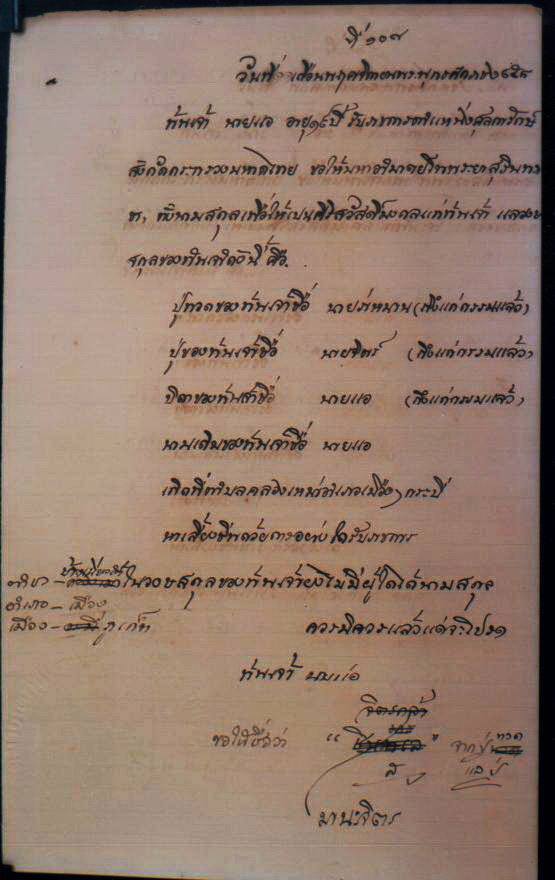 ที่ ๑๐๗
วันที่ เดือนพฤศจิกายนพระพุทธศักราช ๒๔๕๘
ข้าพเจ้า นายแอ อายุ ๑๙ ปี รับราชการตำแหน่งศุลการักษ์
สังกัดกระทรวงมหาดไทย ขอให้มหาอำมาตย์โทพระยาสุรินทรา
ชา, ตั้งนามสกุลเพื่อให้เปนศิริสวัสดิมงคลแก่ข้าพเจ้า แลวงษ
สกุลของข้าพเจ้าดังนี้ คือ.
ปู่ทวดของข้าพเจ้าชื่อ นาย (ถึงแก่กรรมแล้ว)
ปู่ของข้าพเจ้าชื่อ นายจิตร์ (ถึงแก่กรรมแล้ว)
บิดาของข้าพเจ้าชื่อ นายแอ (ถึงแก่กรรมแล้ว)
นามเดิมของข้าพเจ้าชื่อ นายแอ
เกิดที่ตำบลคลอง อำเภอเมือง กระบี่
หาเลี้ยงชีพด้วยการอย่างใด รับราชการ
ในวงษสกุลของข้าพเจ้ายังไม่มีผู้ใดได้นามสกุล
ตำบล –
อำเภอ – เมือง
เมือง – ภูเก็ต
ควรมิควรแล้วแต่จะโปรด
ข้าพเจ้า นายแอ
จิตรกล้า
ขอให้ชื่อว่า " " จากปู่ทวด
แลปู่
มานะจิตร